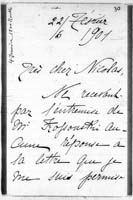 30
22 Février
1901
Très cher Nicolas,
Ne recevant
par l'entremise de
Mr
aucune réponse à
la lettre que je
me suis permise